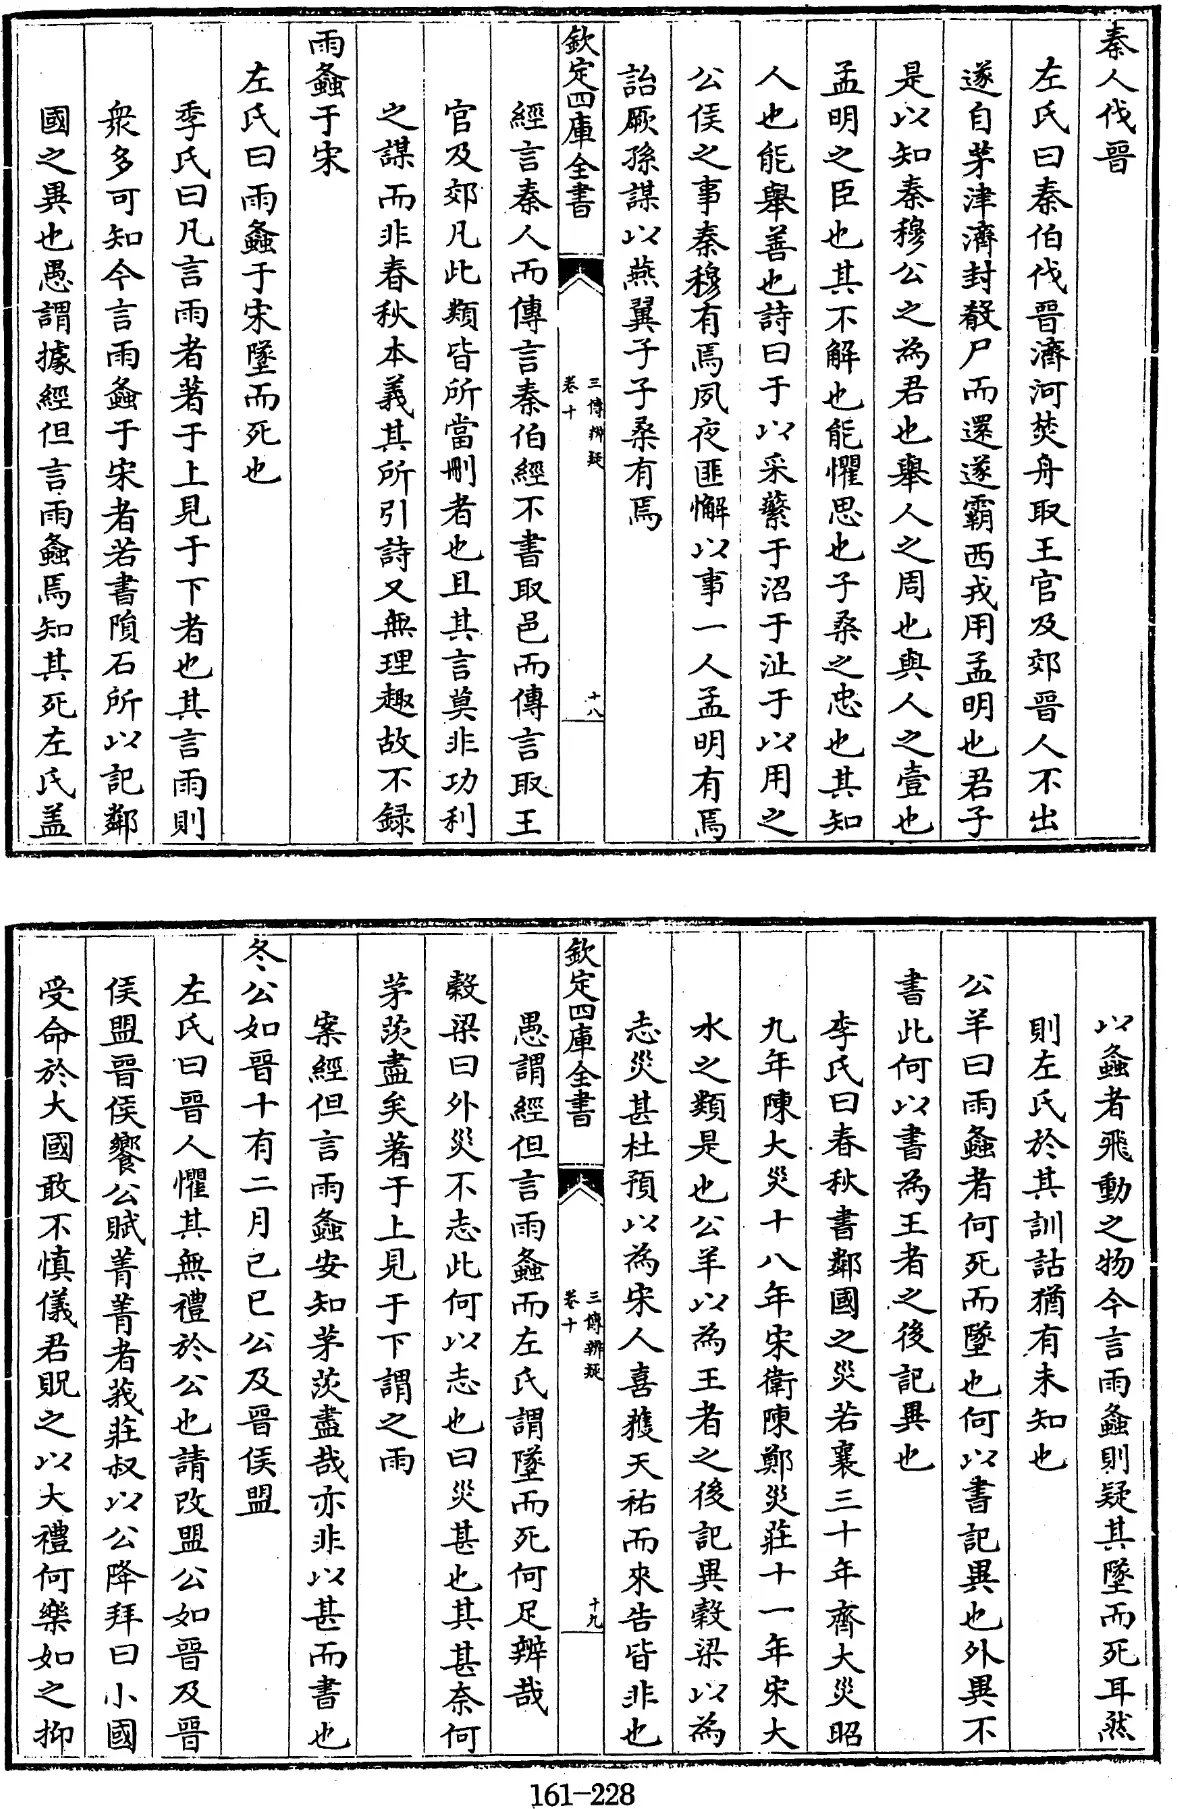 秦人伐晉
左氏曰秦伯伐晉濟河焚舟取王官及郊晉人不出
遂自茅津濟封殽尸而還遂霸西戎用孟明也君子
是以知秦穆公之為君也舉人之周也與人之壹也
孟明之臣也其不解也能懼思也子桑之忠也其知
人也能舉善也詩曰于以采蘩于沼于沚于以用之
公侯之事秦穆有焉夙夜匪懈以事一人孟明有焉
詒厥孫謀以燕翼子子桑有焉
欽定四庫全書
三傳辨疑
卷十
十八
經言秦人而傳言秦伯經不書取邑而傳言取王
官及郊凡此類皆所當刪者也且其言莫非功利
之謀而非春秋本義其所引詩又無理趣故不錄
雨螽于宋
左氏曰雨螽于宋墜而死也
季氏曰凡言雨者著于上見于下者也其言雨則
衆多可知今言雨螽于宋者若書隕石所以記鄰
國之異也愚謂據經但言雨螽焉知其死左氏盖
以螽者飛動之物今言雨螽則疑其墜而死耳然
則左氏於其訓詁猶有未知也
公羊曰雨螽者何死而墜也何以書記異也外異不
書此何以書為王者之後記異也
李氏曰春秋書鄰國之災若襄三十年齊大災昭
九年陳大災十八年宋衛陳鄭災莊十一年宋大
水之類是也公羊以為王者之後記異穀梁以為
志災甚杜預以為宋人喜獲天祐而來告皆非也
欽定四庫全書
三傳辨疑
卷十
十九
愚謂經但言雨螽而左氏謂墜而死何足辨哉
穀梁曰外災不志此何以志也曰災甚也其甚奈何
茅茨盡矣著于上見于下謂之雨
案經但言雨螽安知茅茨盡哉亦非以甚而書也
冬公如晉十有二月己巳公及晉侯盟
左氏曰晉人懼其無禮於公也請改盟公如晉及晉
侯盟晉侯饗公賦菁菁者莪莊叔以公降拜曰小國
受命於大國敢不慎儀君貺之以大禮何樂如之抑
161-228